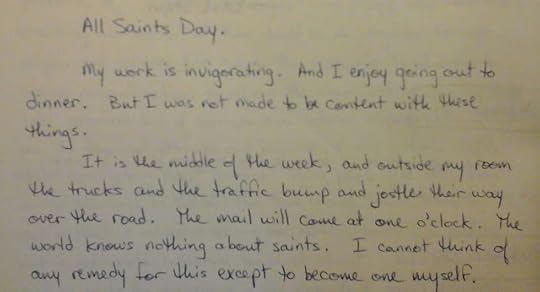 All Saints Day.
My work is invigorating. And I enjoy going out to
dinner. But I was not made to be content with these
things.
It is the middle of the week, and outside my room
the trucks and the traffic bump and jostle their way
over the road. The mail will come at one o'clock. The
world knows nothing about saints. I cannot think of
any remedy for this except to become one myself.